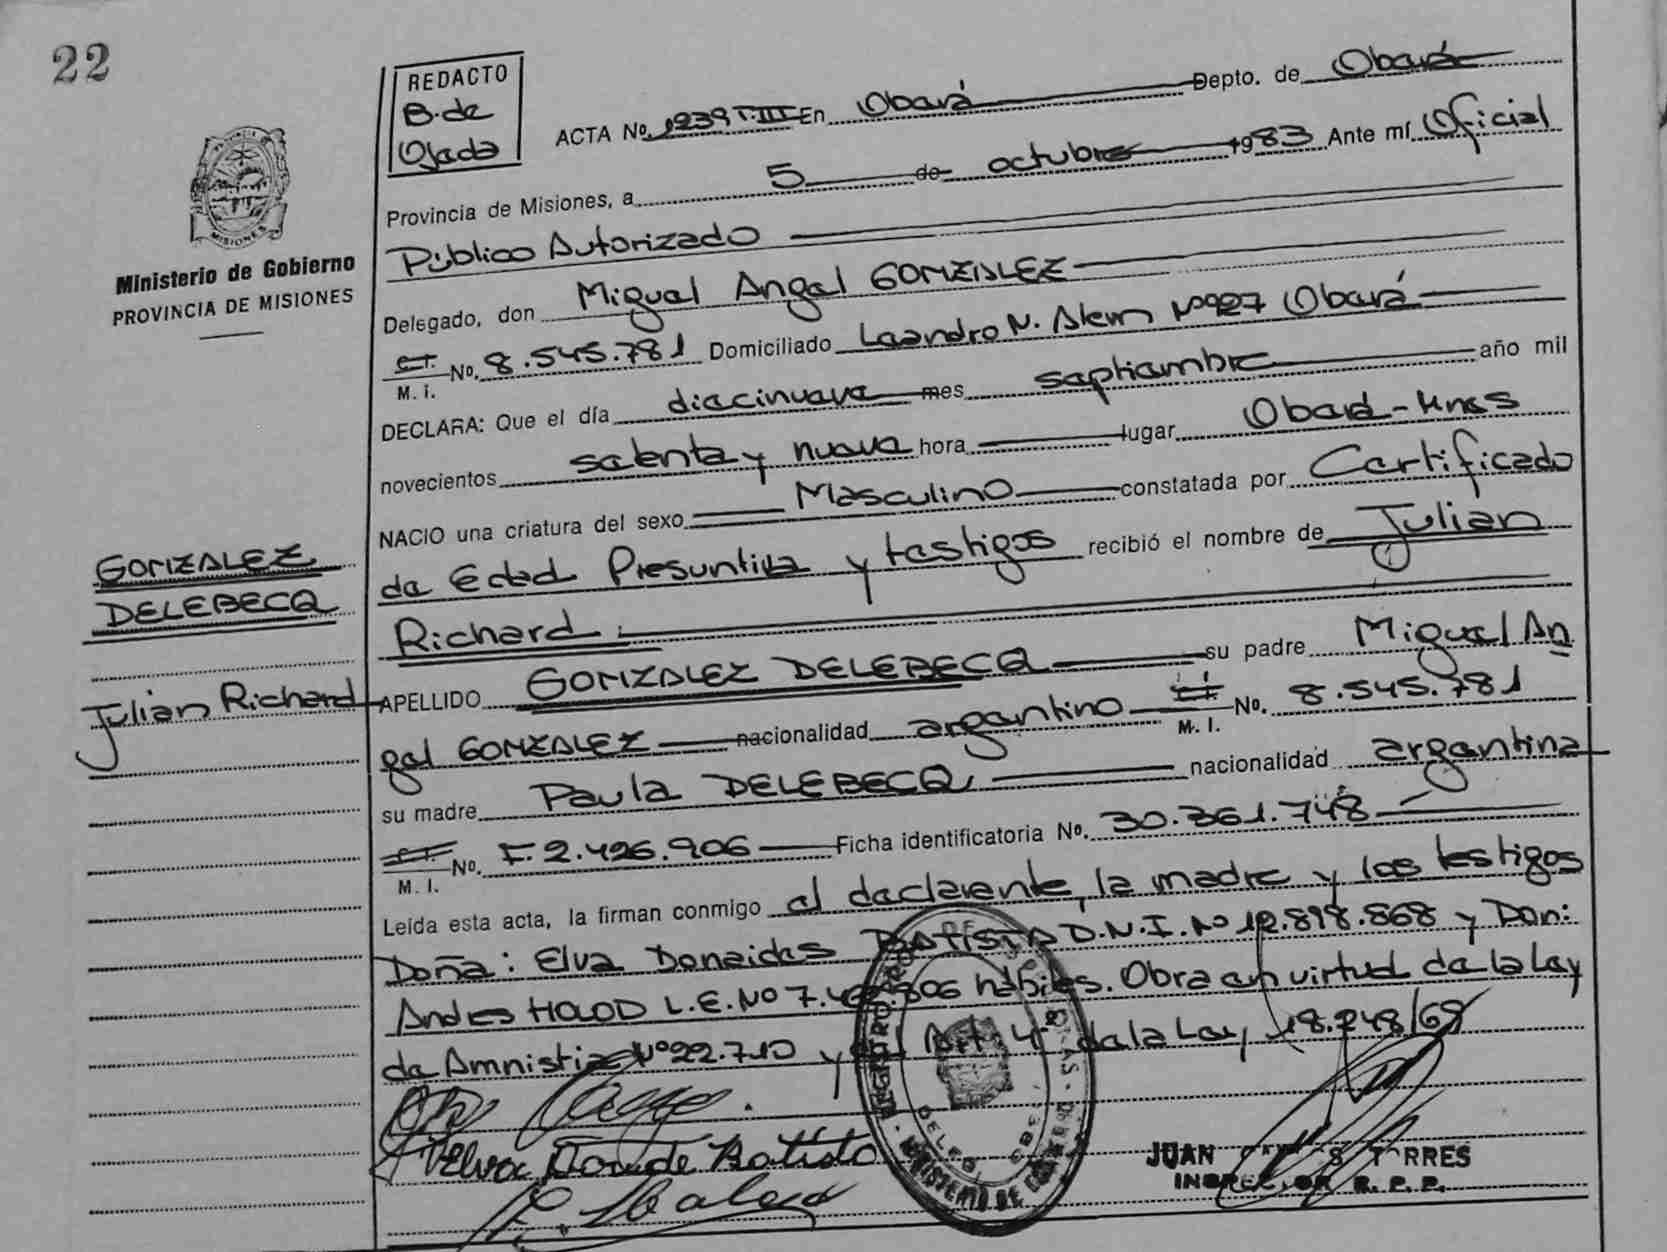 22
REDACTO
B. de
Ojeda
ACTA No. 1239 T. III En Oberá Depto. de Oberá
Provincia de Misiones, a 5 de octubre 1983 Ante mí Oficial
Público Autorizado
Delegado, don Miguel Angel GONZALEZ
C.I. M. I. No. 8.545.781 Domiciliado Leandro N. Alem Nº 927 Oberá
DECLARA: Que el día diecinueve mes septiembre año mil
novecientos setenta y nueve hora lugar Oberá - Mnes
NACIO una criatura del sexo Masculino constatada por Certificado
de Edad Presuntiva y testigos recibió el nombre de Julian
Richard
APELLIDO GONZALEZ DELEBECQ su padre Miguel An
gel GONZALEZ nacionalidad argentino C.I. M. I. No. 8.545.781
su madre Paula DELEBECQ nacionalidad argentina
C.I. M. I. No. F. 2.426.906 Ficha identificatoria No. 30.361.748
Leída esta acta, la firman conmigo el declarante, la madre y los testigos
Doña: Elva Donaides BATISTA D.N.I. Nº 12.898.868 y Don:
Andres HOLOD L.E. Nº 7. .806 hábiles. Obra en virtud de la Ley
de Amnistia Nº 22.710 y Art. 4º de la Ley 18.248/69
JUAN TORRES
INSPECTOR R. P. P.
MISIONES
Ministerio de Gobierno
PROVINCIA DE MISIONES
GONZALEZ
DELEBECQ
Julian Richard